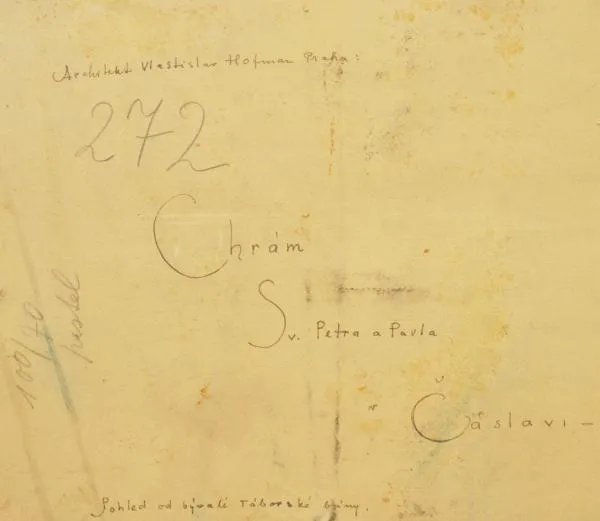 Architekt Vlastislav Hofman Praha:
272
Chrám
Sv. Petra a Pavla
v Čáslavi –
100/70
pastel
Pohled od bývalé Táborské brány.